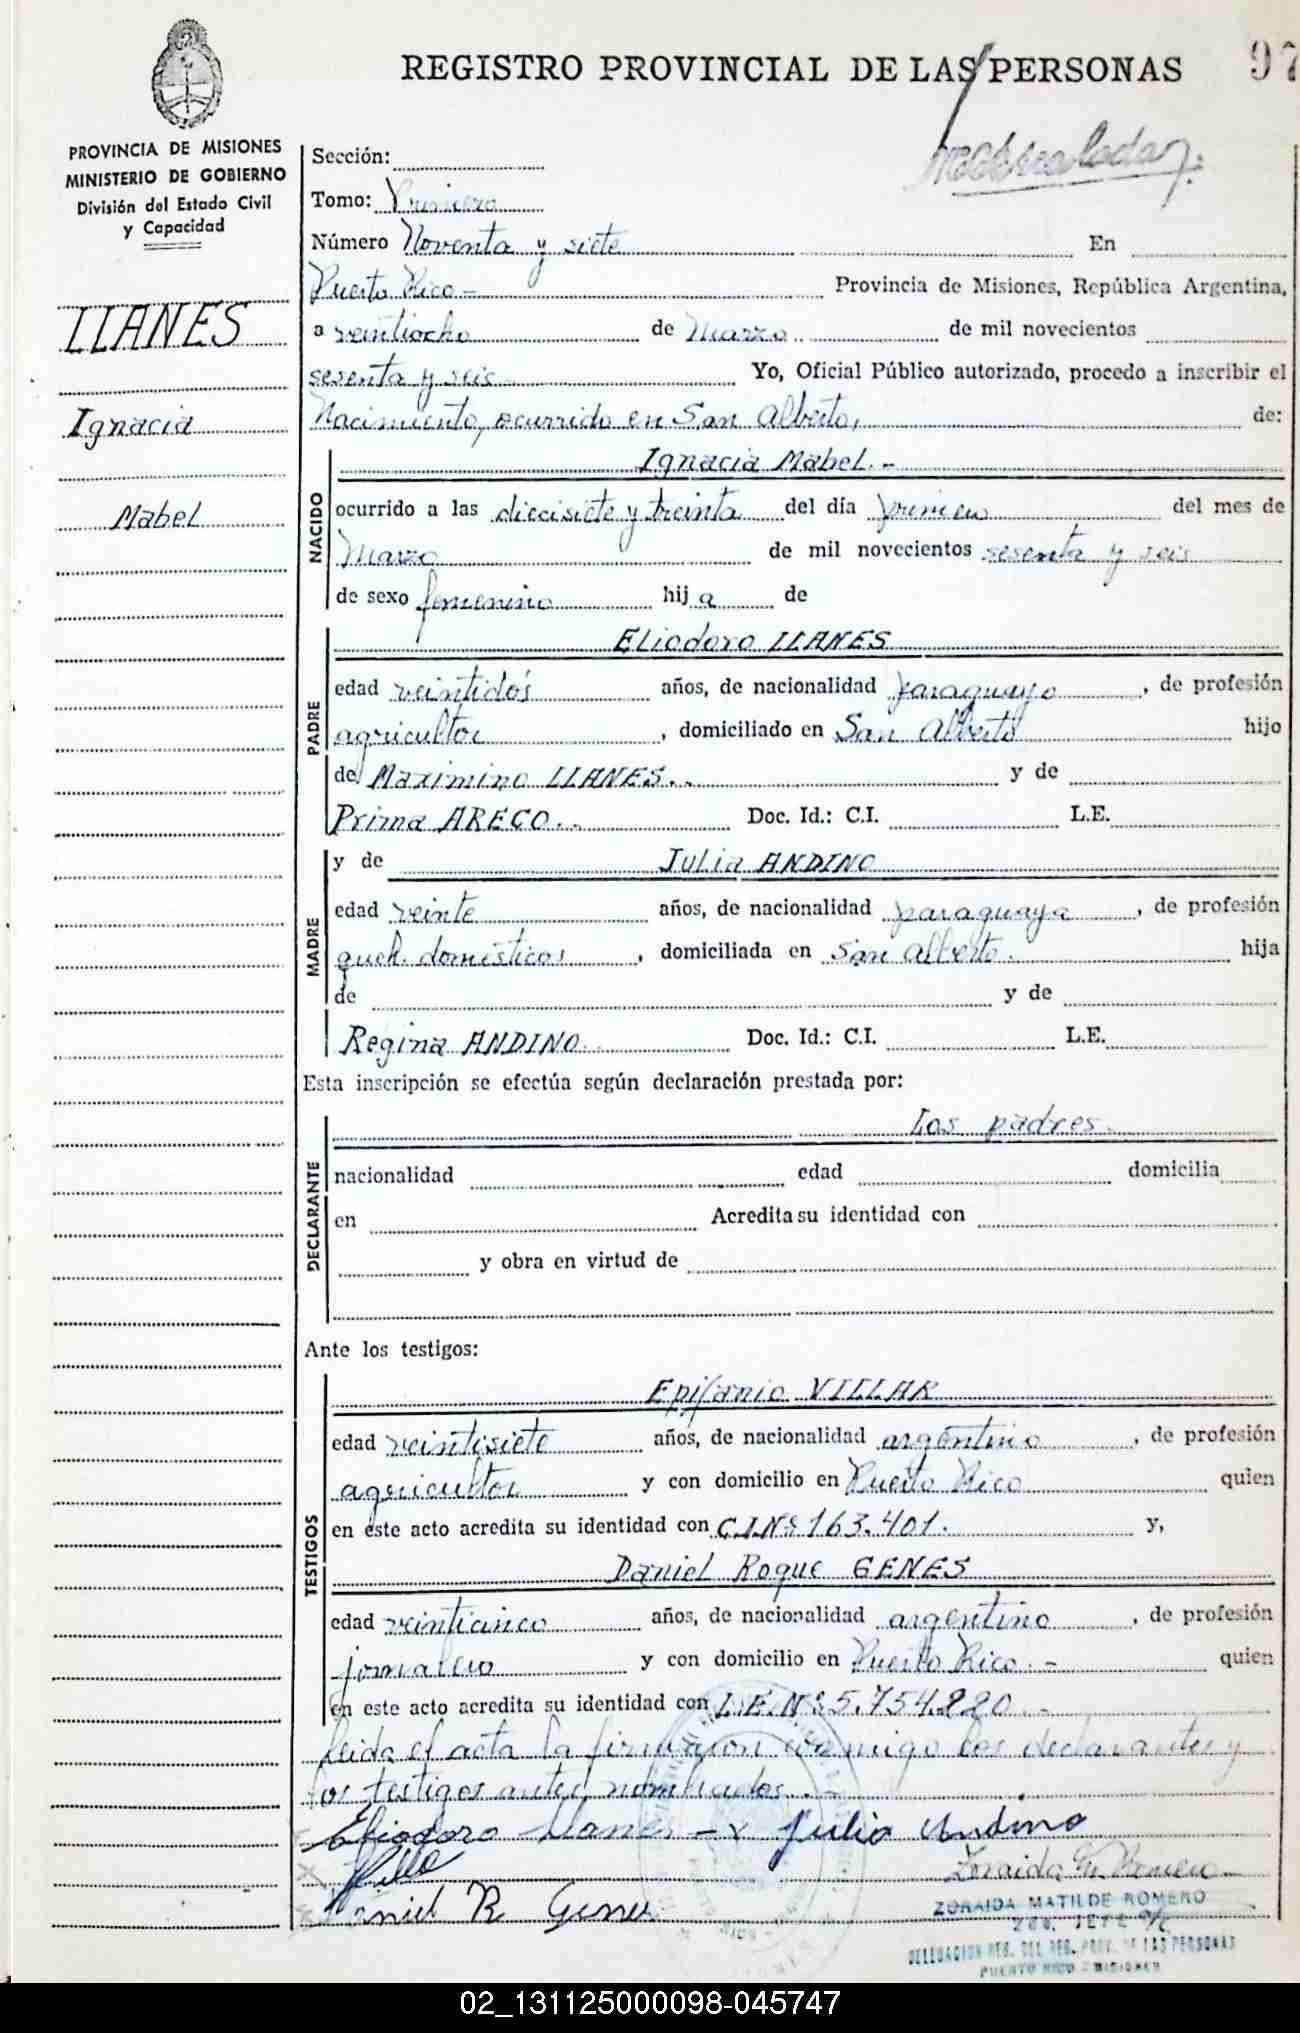 REGISTRO PROVINCIAL DE LAS PERSONAS
97
PROVINCIA DE MISIONES
MINISTERIO DE GOBIERNO
División del Estado Civil
y Capacidad
LLANES
Ignacia
Mabel
Sección:
Tomo: Primero
Número Noventa y siete En
Puerto Rico - Provincia de Misiones, República Argentina,
a veintiocho de Marzo de mil novecientos
sesenta y seis Yo, Oficial Público autorizado, procedo a inscribir el
Nacimiento, ocurrido en San Alberto, de:
NACIDO
Ignacia Mabel.-
ocurrido a las diecisiete y treinta del día primero del mes de
Marzo de mil novecientos sesenta y seis
de sexo femenino hija de
PADRE
Eliodoro LLANES
edad veintidós años, de nacionalidad paraguayo, de profesión
agricultor, domiciliado en San Alberto hijo
de Maximino LLANES.. y de
Prima ARECO.. Doc. Id.: C.I. L.E.
MADRE
y de Julia ANDINO
edad veinte años, de nacionalidad paraguaya, de profesión
queh. domésticos, domiciliada en San Alberto. hija
de y de
Regina ANDINO. Doc. Id.: C.I. L.E.
Esta inscripción se efectúa según declaración prestada por:
DECLARANTE
Los padres.
nacionalidad edad domicilia
en Acredita su identidad con
y obra en virtud de
Ante los testigos:
TESTIGOS
Epifanio VILLAR
edad veintisiete años, de nacionalidad argentino, de profesión
agricultor y con domicilio en Puerto Rico quien
en este acto acredita su identidad con C.I.Nº 163.401. y,
Daniel Roque GENES
edad veinticinco años, de nacionalidad argentino, de profesión
jornalero y con domicilio en Puerto Rico.- quien
en este acto acredita su identidad con L.E.Nº 5.754.220.
Leida el acta la firmaron conmigo los declarantes y
los testigos antes nombrados.-
Eliodoro Llanes - Julia Andino
Daniel R Genes
ZORAIDA MATILDE ROMERO
DELEGACION REG. DEL REG. PROV. DE LAS PERSONAS
PUERTO RICO - MISIONES
02_131125000098-045747